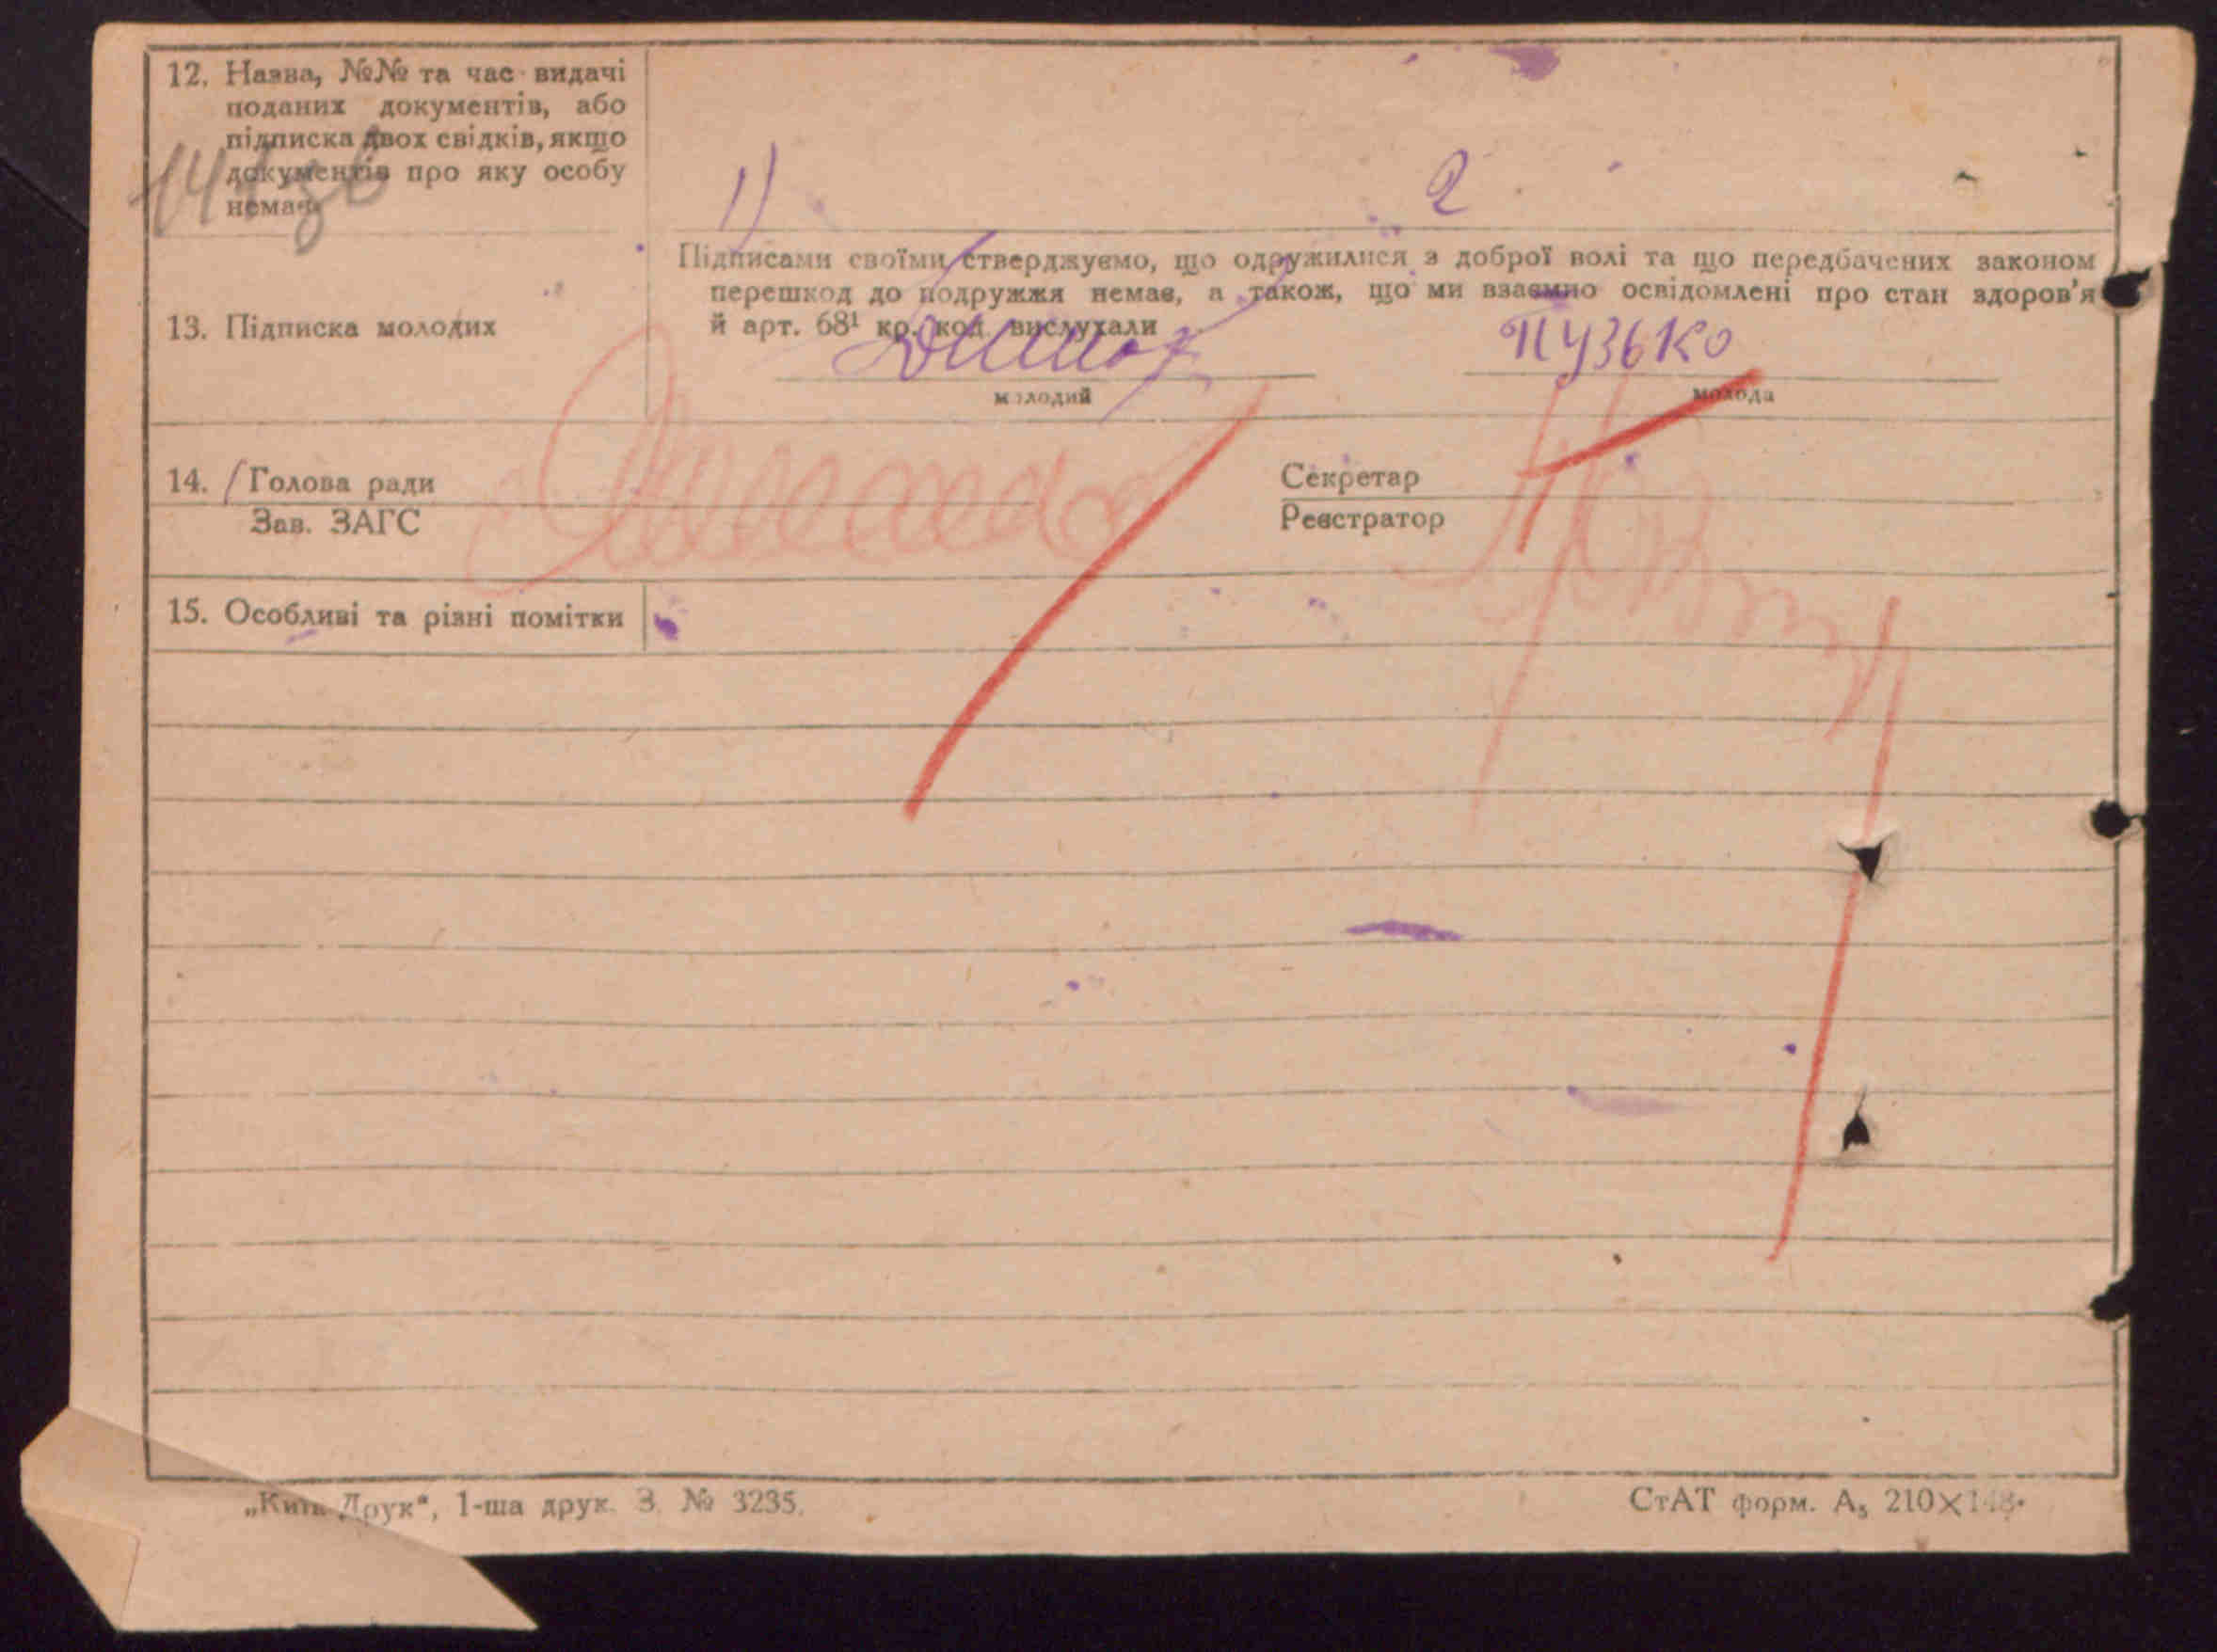 12. Назва, №№ та час видачі
поданих документів, або
підписка двох свідків, якщо
документів про яку особу
немає
1) 2
13. Підписка молодих
Підписами своїми стверджуємо, що одружилися з доброї волі та що передбачених законом
перешкод до подружжя немає, а також, що ми взаємно освідомлені про стан здоров'я
й арт. 68¹ кр. код. вислухали
Пузько
молодий молода
14. Голова ради Секретар
Зав. ЗАГС Реєстратор
15. Особливі та різні помітки
„Київ Друк“, 1-ша друк. З. № 3235. СтАТ форм. А₅ 210×148.